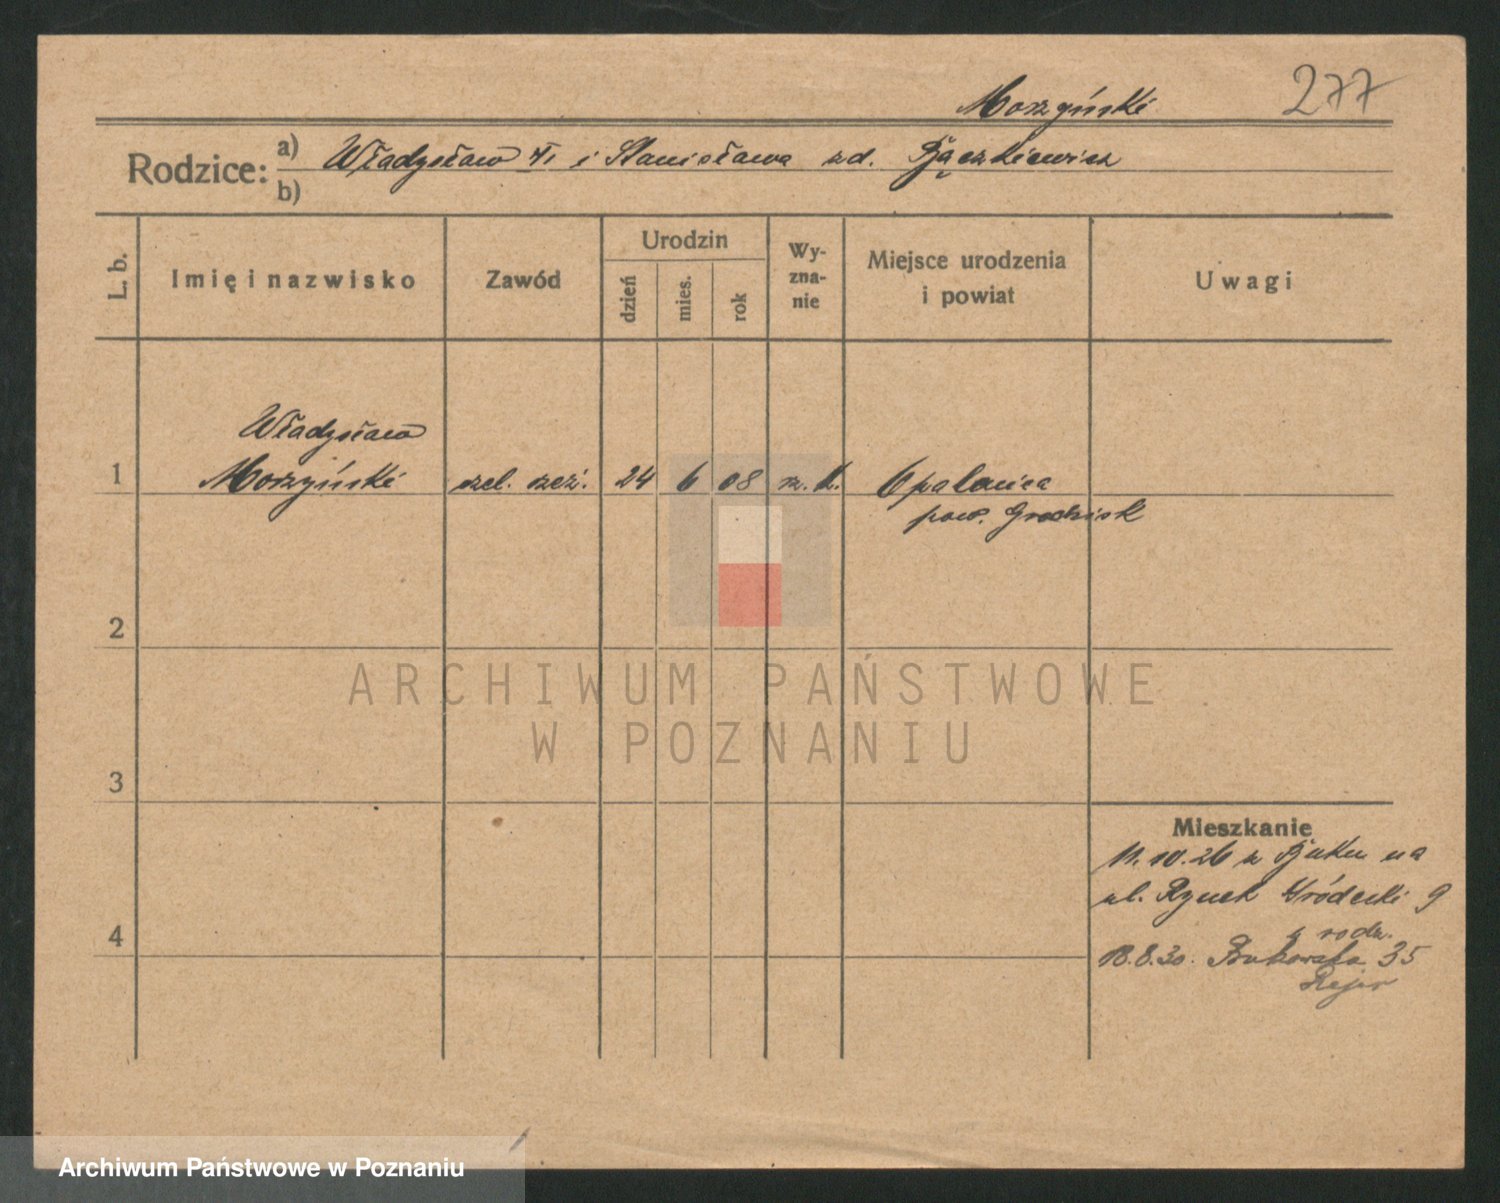 Morzyński 277
Rodzice: a) Władysław i Stanisława zd. Bączkiewicz
b)
L. b.
Imię i nazwisko
Zawód
Urodzin
dzień
mies.
rok
Wy-
zna-
nie
Miejsce urodzenia
i powiat
Uwagi
Władysław
1 Morzyński czel. rzeź. 24 6 08 rz. k. Opalenica
pow. Grodzisk
2
ARCHIWUM PAŃSTWOWE
W POZNANIU
3
Mieszkanie
11.10.26 z Buku na
ul. Rynek Wródecki 9
4
u rodz.
18.8.30. Bukowska 35
Archiwum Państwowe w Poznaniu